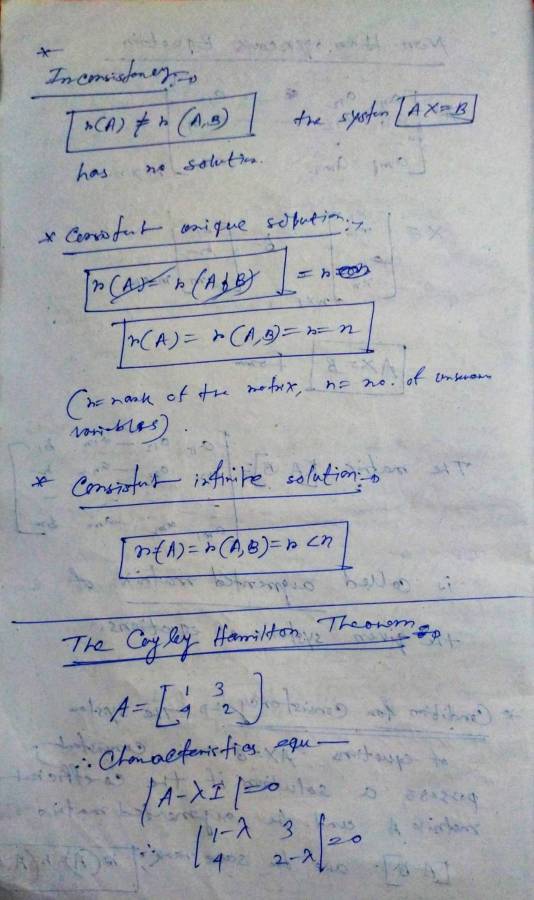 *
Inconsistency:→
r(A) ≠ r(A,B) the system AX=B
has no solution.
* Consistent unique solution:→
r(A) = r(A,B) = n
r(A) = r(A,B) = r = n
(r = rank of the matrix, n = no. of unknown
variables).
* Consistent infinite solution:→
r(A) = r(A,B) = r < n
The Cayley Hamilton Theorem:→
A = [1 3
4 2]
∴ Characteristics equ—
|A-λI|=0
|1-λ 3
4 2-λ|=0